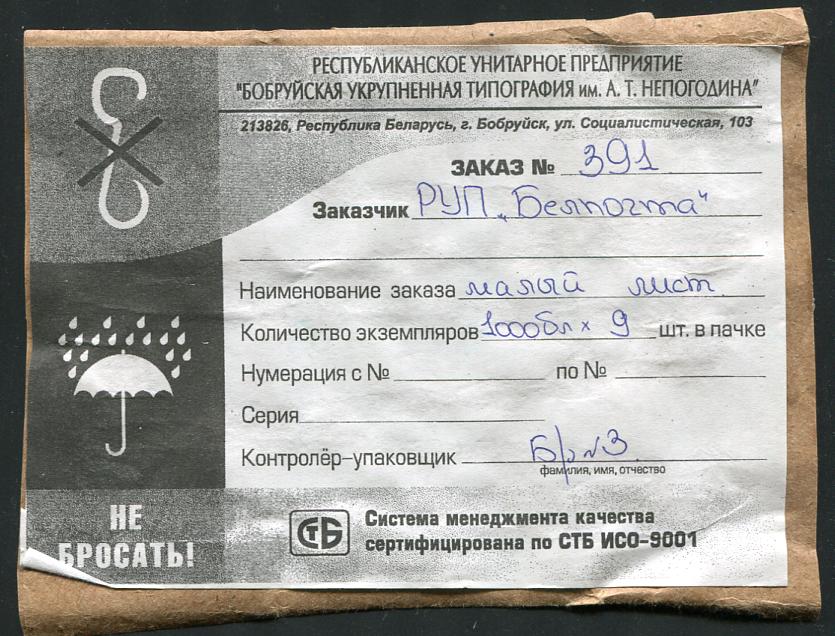 РЕСПУБЛИКАНСКОЕ УНИТАРНОЕ ПРЕДПРИЯТИЕ
"БОБРУЙСКАЯ УКРУПНЕННАЯ ТИПОГРАФИЯ им. А. Т. НЕПОГОДИНА"
213826, Республика Беларусь, г. Бобруйск, ул. Социалистическая, 103
ЗАКАЗ № 391
Заказчик РУП „Белпочта"
Наименование заказа малый лист
Количество экземпляров 1000бл х 9 шт. в пачке
Нумерация с № по №
Серия
Контролёр-упаковщик Бр №3
фамилия, имя, отчество
НЕ
БРОСАТЬ!
СТБ
Система менеджмента качества
сертифицирована по СТБ ИСО-9001